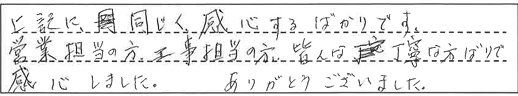 上記に、同じく、感心するばかりです。
営業担当の方、工事担当の方、皆んな丁寧な方ばりで
感心しました。　ありがとうございました。